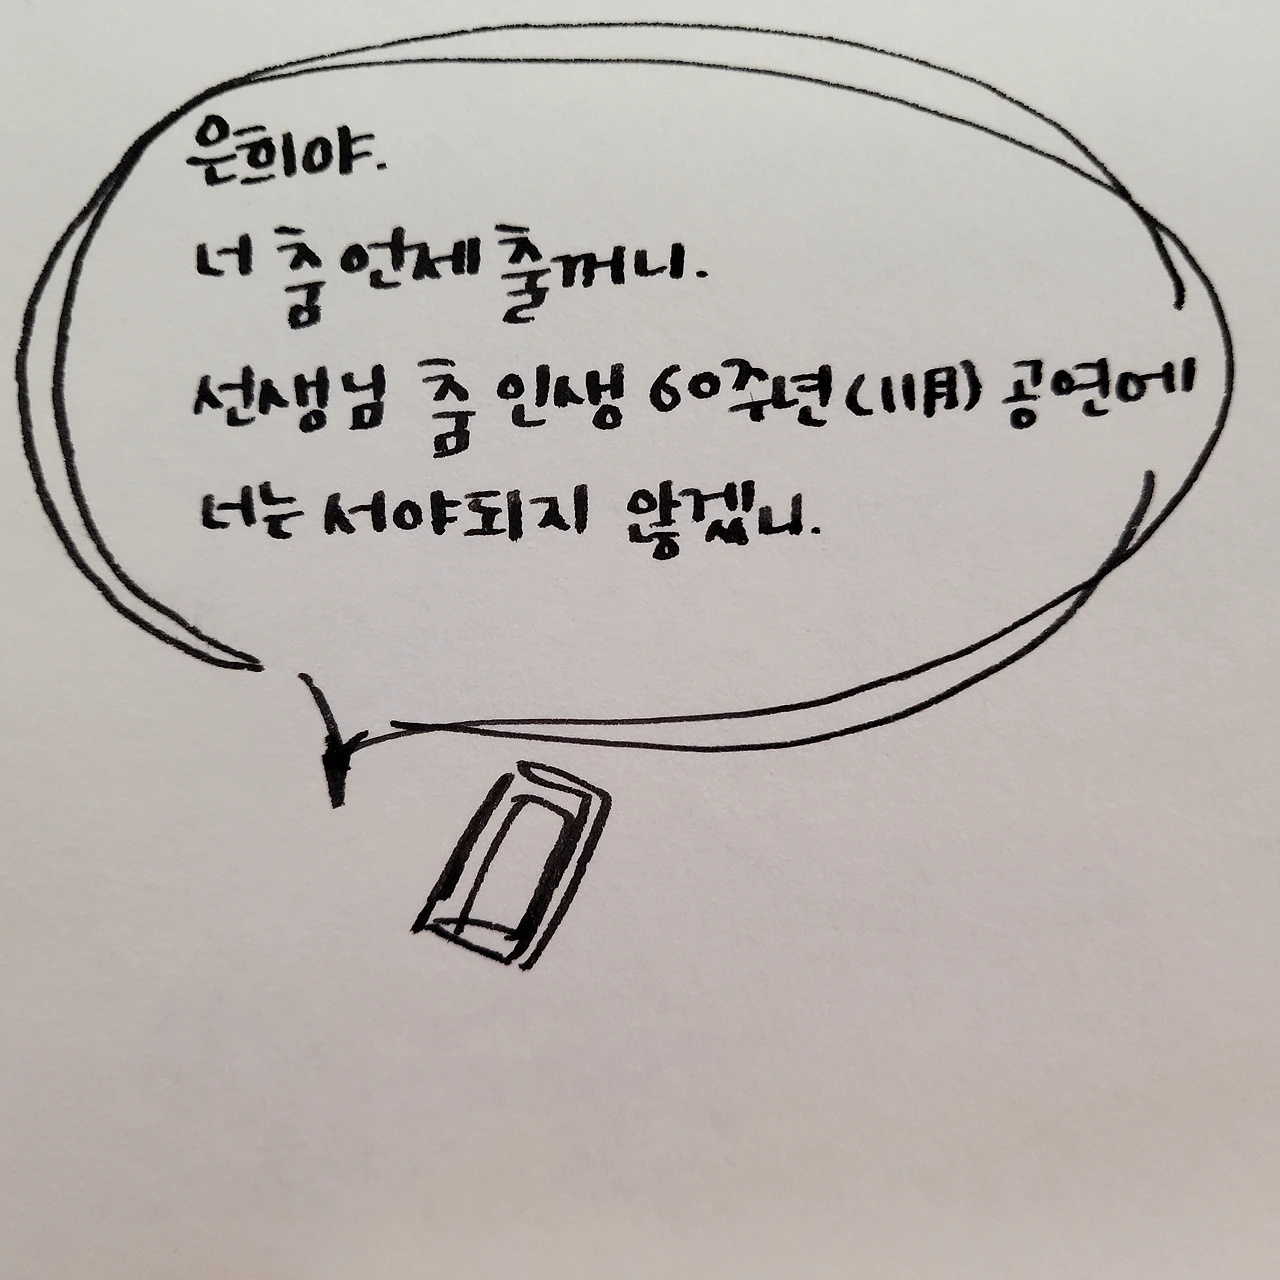 은희야.
너 춤 언제 출꺼니.
선생님 춤 인생 60주년 (11月) 공연에
너는 서야되지 않겠니.